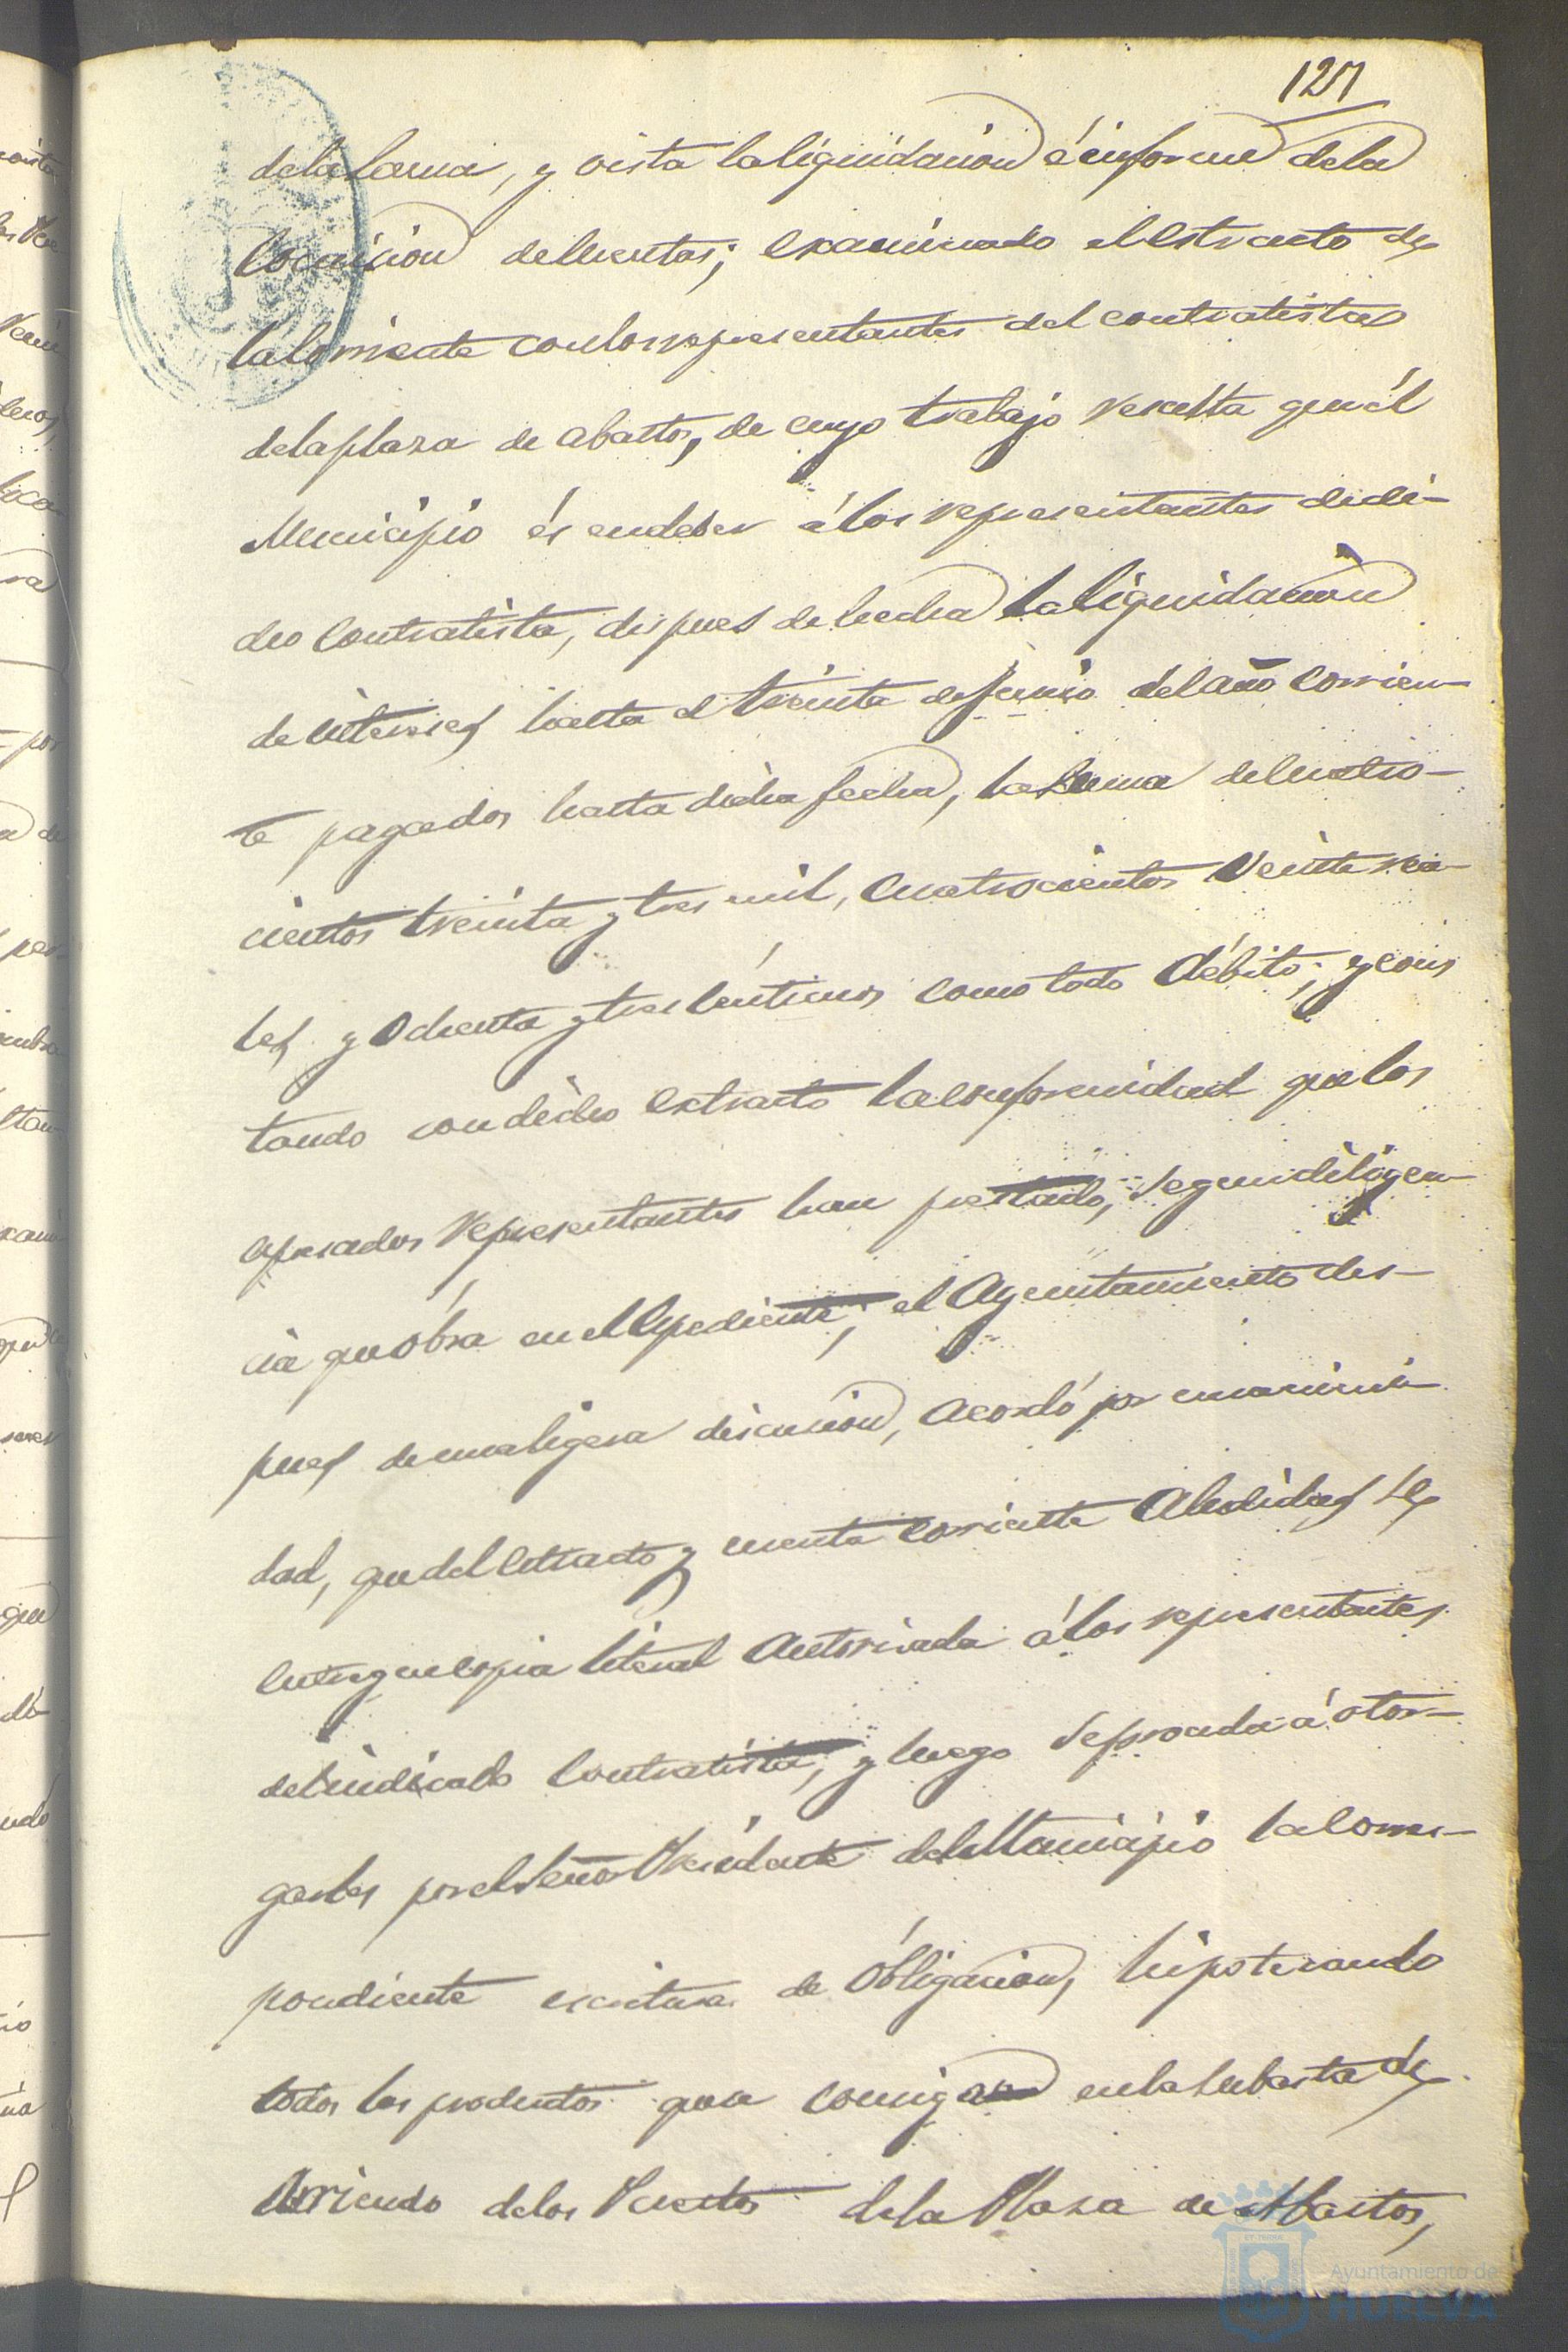 127
de la Carua, y vista la liquidacion é informe de la
Comision de Cuentas; examinado el estracto de
la Corriente con los representantes del contratista
de la plaza de abastos, de cuyo trabajo resulta que él
Municipio és en deber á los representantes de di-
cho Contratista, despues de hecha la liquidación
de intereses hasta el treinta de Junio del año corrien-
te pagados hasta dicha fecha, la suma de cuatro-
cientos treinta y tres mil, cuatrocientos veinte rea-
les y ochenta y tres céntimos como todo débito; y cons
tando con dicho extracto la conformidad que los
espresados representantes han prestado, segun diligen-
cia que óbra en el Espediente; el Ayuntamiento des-
pues de una ligera discusion, acordó por unanimi-
dad, que del Estracto y cuenta corriente aludidas se
entregue copia literal autorizada á los representantes
del indicado Contratista; y luego se proceda á otor-
garles por el Señor Presidente del Municipio la corres-
pondiente escritura de óbligacion, hipotecando
todos los productos que se consigan en la subasta de
Arriendo de los Puestos de la Plaza de Abastos,
Ayuntamiento de
HUELVA